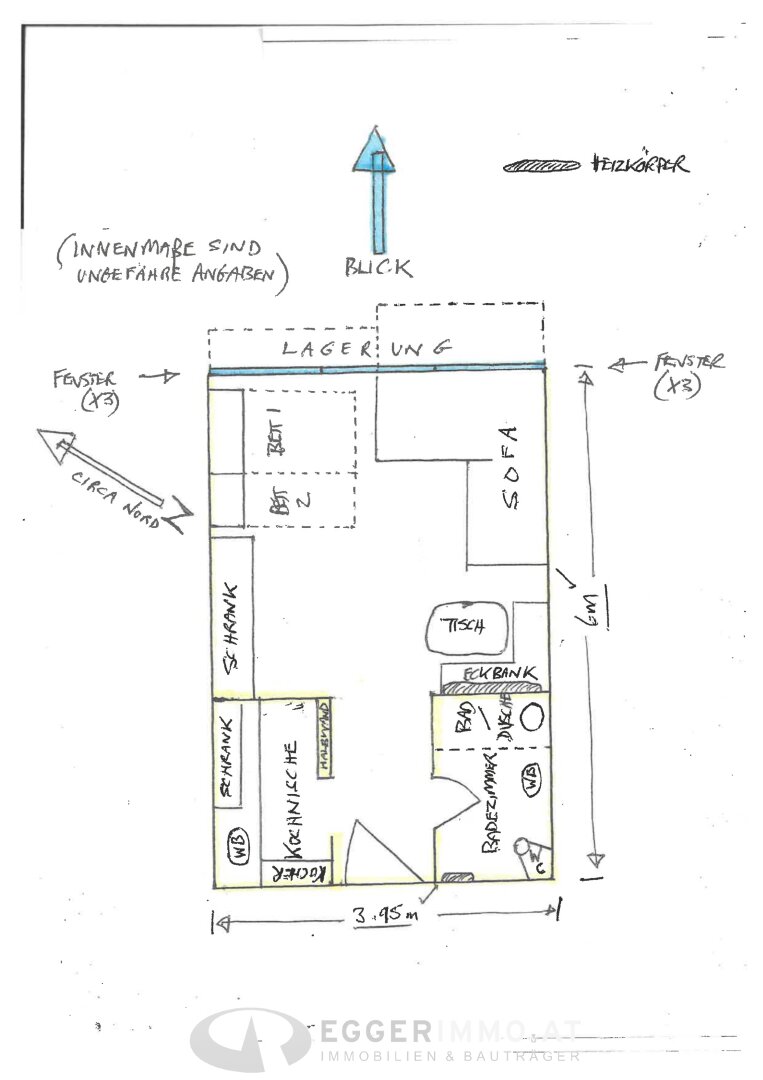 HEIZKÖRPER
(INNENMAßE SIND
UNGEFÄHRE ANGABEN)
BLICK
LAGERUNG
FENSTER
(X3)
FENSTER
(X3)
BETT 1
BETT
2
SOFA
CIRCA NORD
N
SCHRANK
TISCH
6M
ECKBANK
SCHRANK
KOCHNISCHE
HALBWAND
BAD /
DUSCHE
BADEZIMMER
WB
WB
KOCHER
WC
3.95 m
EGGERIMMO.AT
IMMOBILIEN & BAUTRÄGER